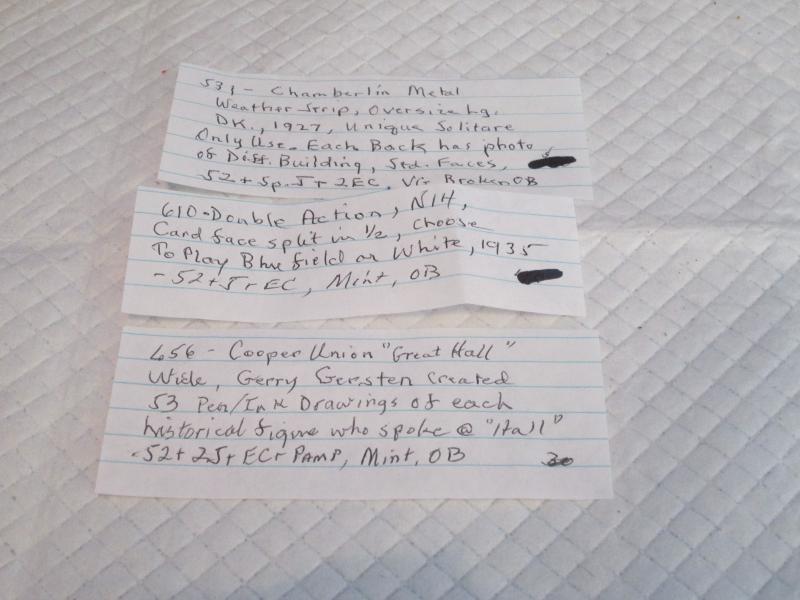 531 - Chamberlin Metal
Weather Strip, Oversize Lg.
DK., 1927, Unique Solitare
Only Use. Each Back has photo
of Diff. Building, Std. Faces,
52+Sp.J+2EC, Vir Broken OB
610-Double Action, N14,
Card face split in 1/2, choose
To Play Blue field or White, 1935
-52+J+EC, Mint, OB
656 - Cooper Union "Great Hall"
Wide, Gerry Gersten created
53 Pen/Ink Drawings of each
historical figure who spoke @ "Hall"
-52+2J+EC+PAMP, Mint, OB